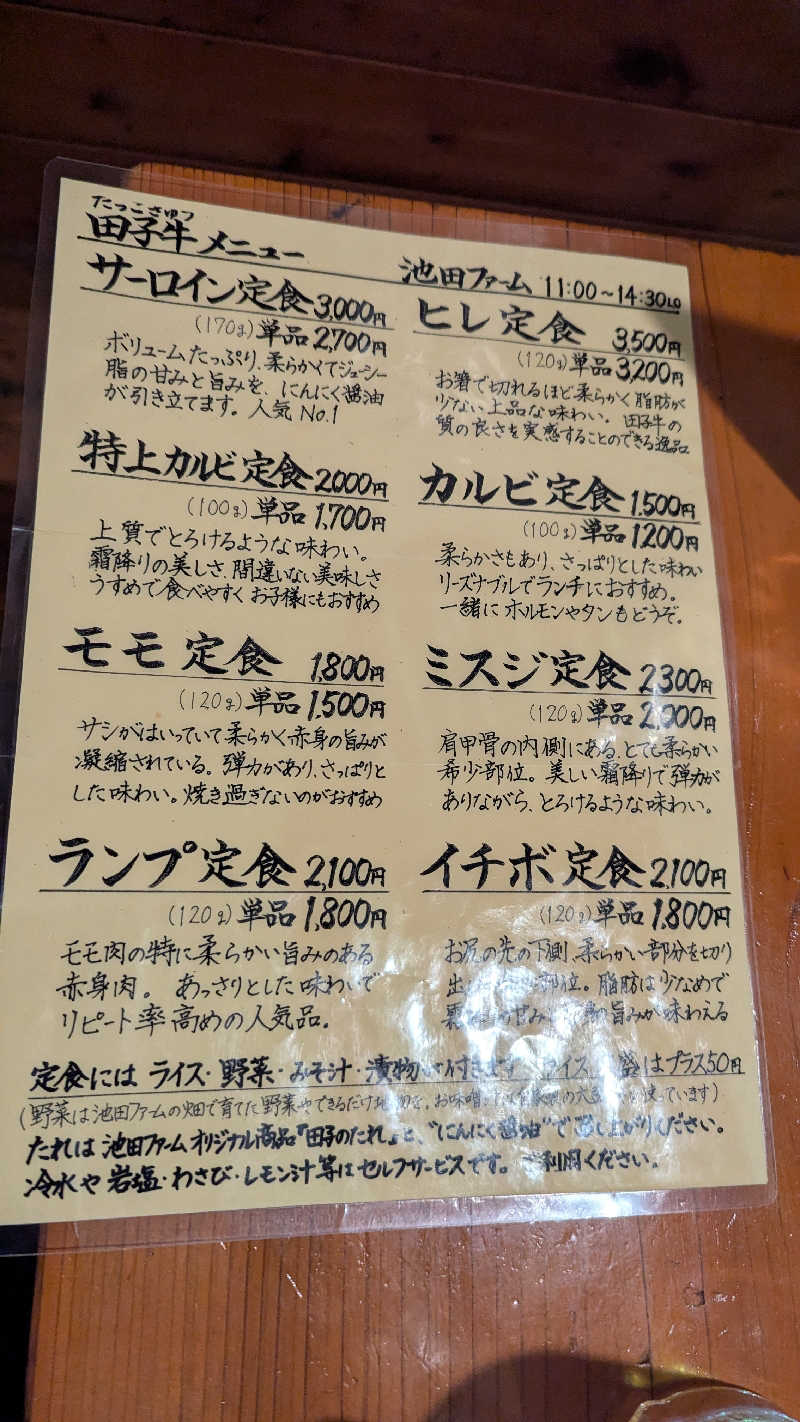 たっこぎゅう
田子牛メニュー
池田ファーム 11:00～14:30LO
サーロイン定食 3,000円
(170g) 単品 2,700円
ボリュームたっぷり、柔らかくてジューシー
脂の甘みと旨みを、にんにく醤油
が引き立てます。人気No.1
ヒレ定食 3,500円
(120g) 単品 3,200円
お箸で切れるほど柔らかく脂肪が
少ない上品な味わい。田子牛の
質の良さを実感することのできる逸品
特上カルビ定食 2,000円
(100g) 単品 1,700円
上質でとろけるような味わい。
霜降りの美しさ、間違いない美味しさ
うすめで食べやすく お子様にもおすすめ
カルビ定食 1,500円
(100g) 単品 1200円
柔らかさもあり、さっぱりとした味わい
リーズナブルでランチにおすすめ。
一緒に ホルモンやタンもどうぞ。
モモ定食 1,800円
(120g) 単品 1,500円
サシがはいっていて柔らかく赤身の旨みが
凝縮されている。弾力があり、さっぱりと
した味わい。焼き過ぎないのがおすすめ
ミスジ定食 2300円
(120g) 単品 2,000円
肩甲骨の内側にある、とても柔らかい
希少部位。美しい霜降りで弾力が
ありながら、とろけるような味わい。
ランプ定食 2,100円
(120g) 単品 1,800円
モモ肉の特に柔らかい旨みのある
赤身肉。あっさりとした味わいで
リピート率高めの人気品。
イチボ定食 2,100円
(120g) 単品 1,800円
お尻の先の下側、柔らかい部分を切り
出 部位。脂肪は少なめで
甘み の旨みが味わえる
定食には ライス・野菜・みそ汁・漬物 付きます ライス はプラス50円
(野菜は池田ファームの畑で育てた野菜やできるだけ を。お味噌 使っています)
たれは 池田ファームオリジナル商品『田子のたれ』と、"にんにく醤油"で召し上がりください。
冷水や岩塩・わさび・レモン汁等はセルフサービスです。ご利用ください。